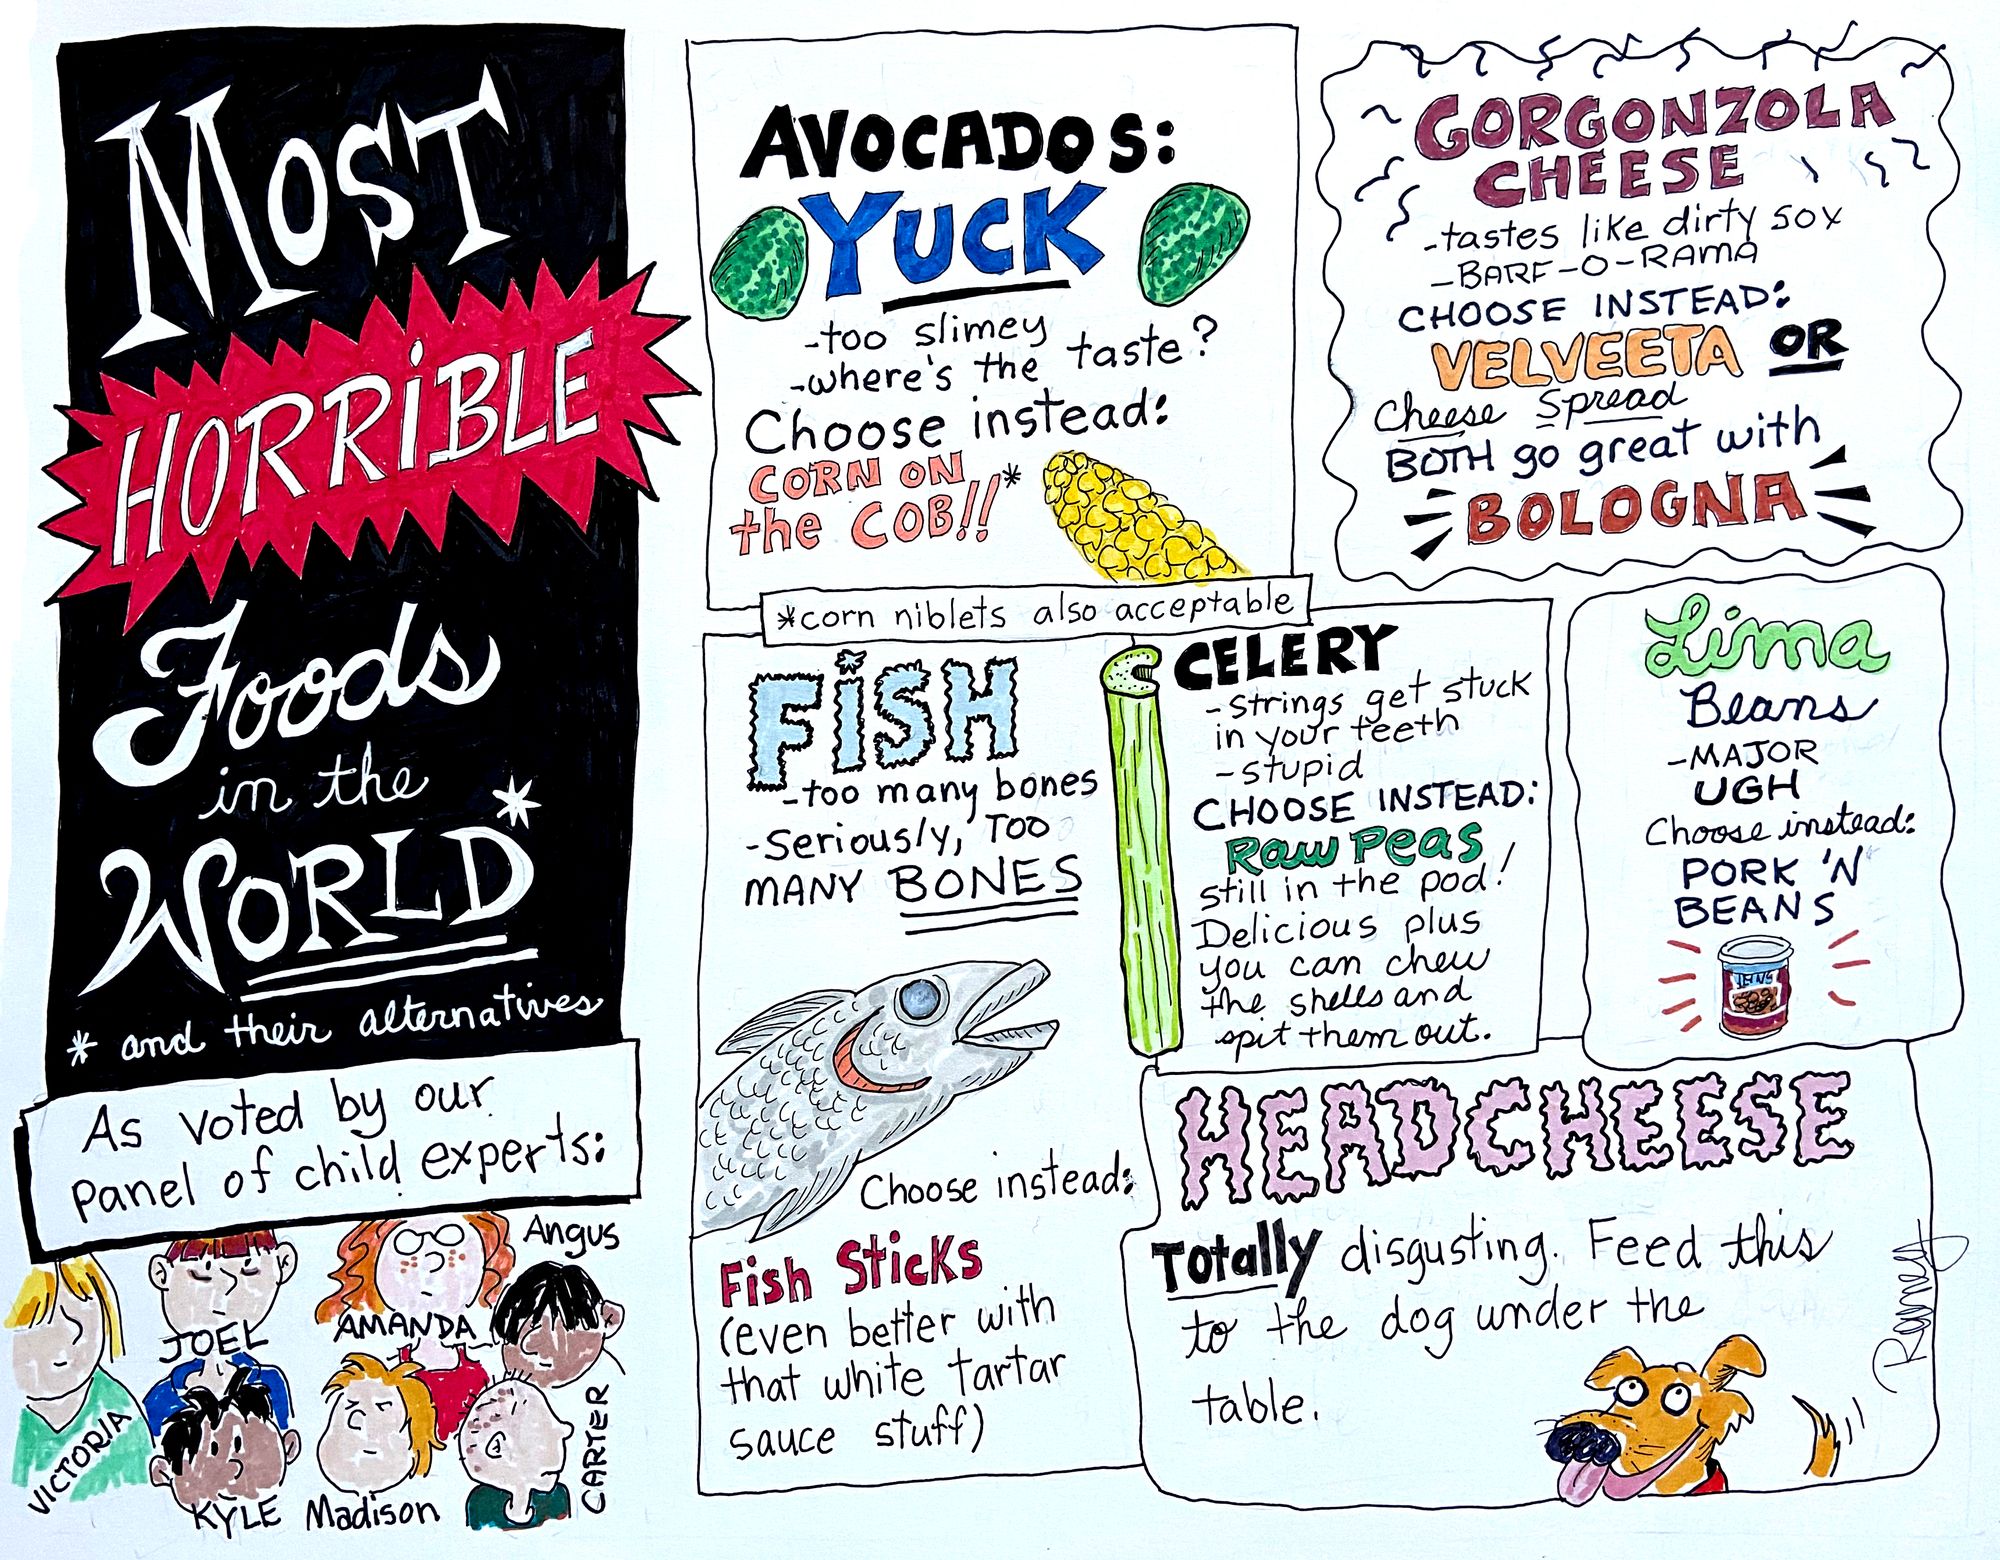 MOST
HORRiBLE
Foods
in the
WORLD*
* and their alternatives
As voted by our
panel of child experts:
Angus
JOEL
AMANDA
VICTORIA
KYLE
Madison
CARTER
AVOCADOS:
YUCK
-too slimey
-where's the taste?
Choose instead:
CORN ON
the COB!!*
*corn niblets also acceptable
GORGONZOLA
CHEESE
-tastes like dirty sox
-BARF-O-RAMA
CHOOSE INSTEAD:
VELVEETA OR
Cheese Spread
BOTH go great with
BOLOGNA
FiSH
-too many bones
-Seriously, TOO
MANY BONES
Choose instead:
Fish Sticks
(even better with
that white tartar
sauce stuff)
CELERY
-strings get stuck
in your teeth
-stupid
CHOOSE INSTEAD:
Raw Peas
still in the pod!
Delicious plus
you can chew
the shells and
spit them out.
Lima
Beans
-MAJOR
UGH
Choose instead:
PORK 'N
BEANS
HEADCHEESE
Totally disgusting. Feed this
to the dog under the
table.